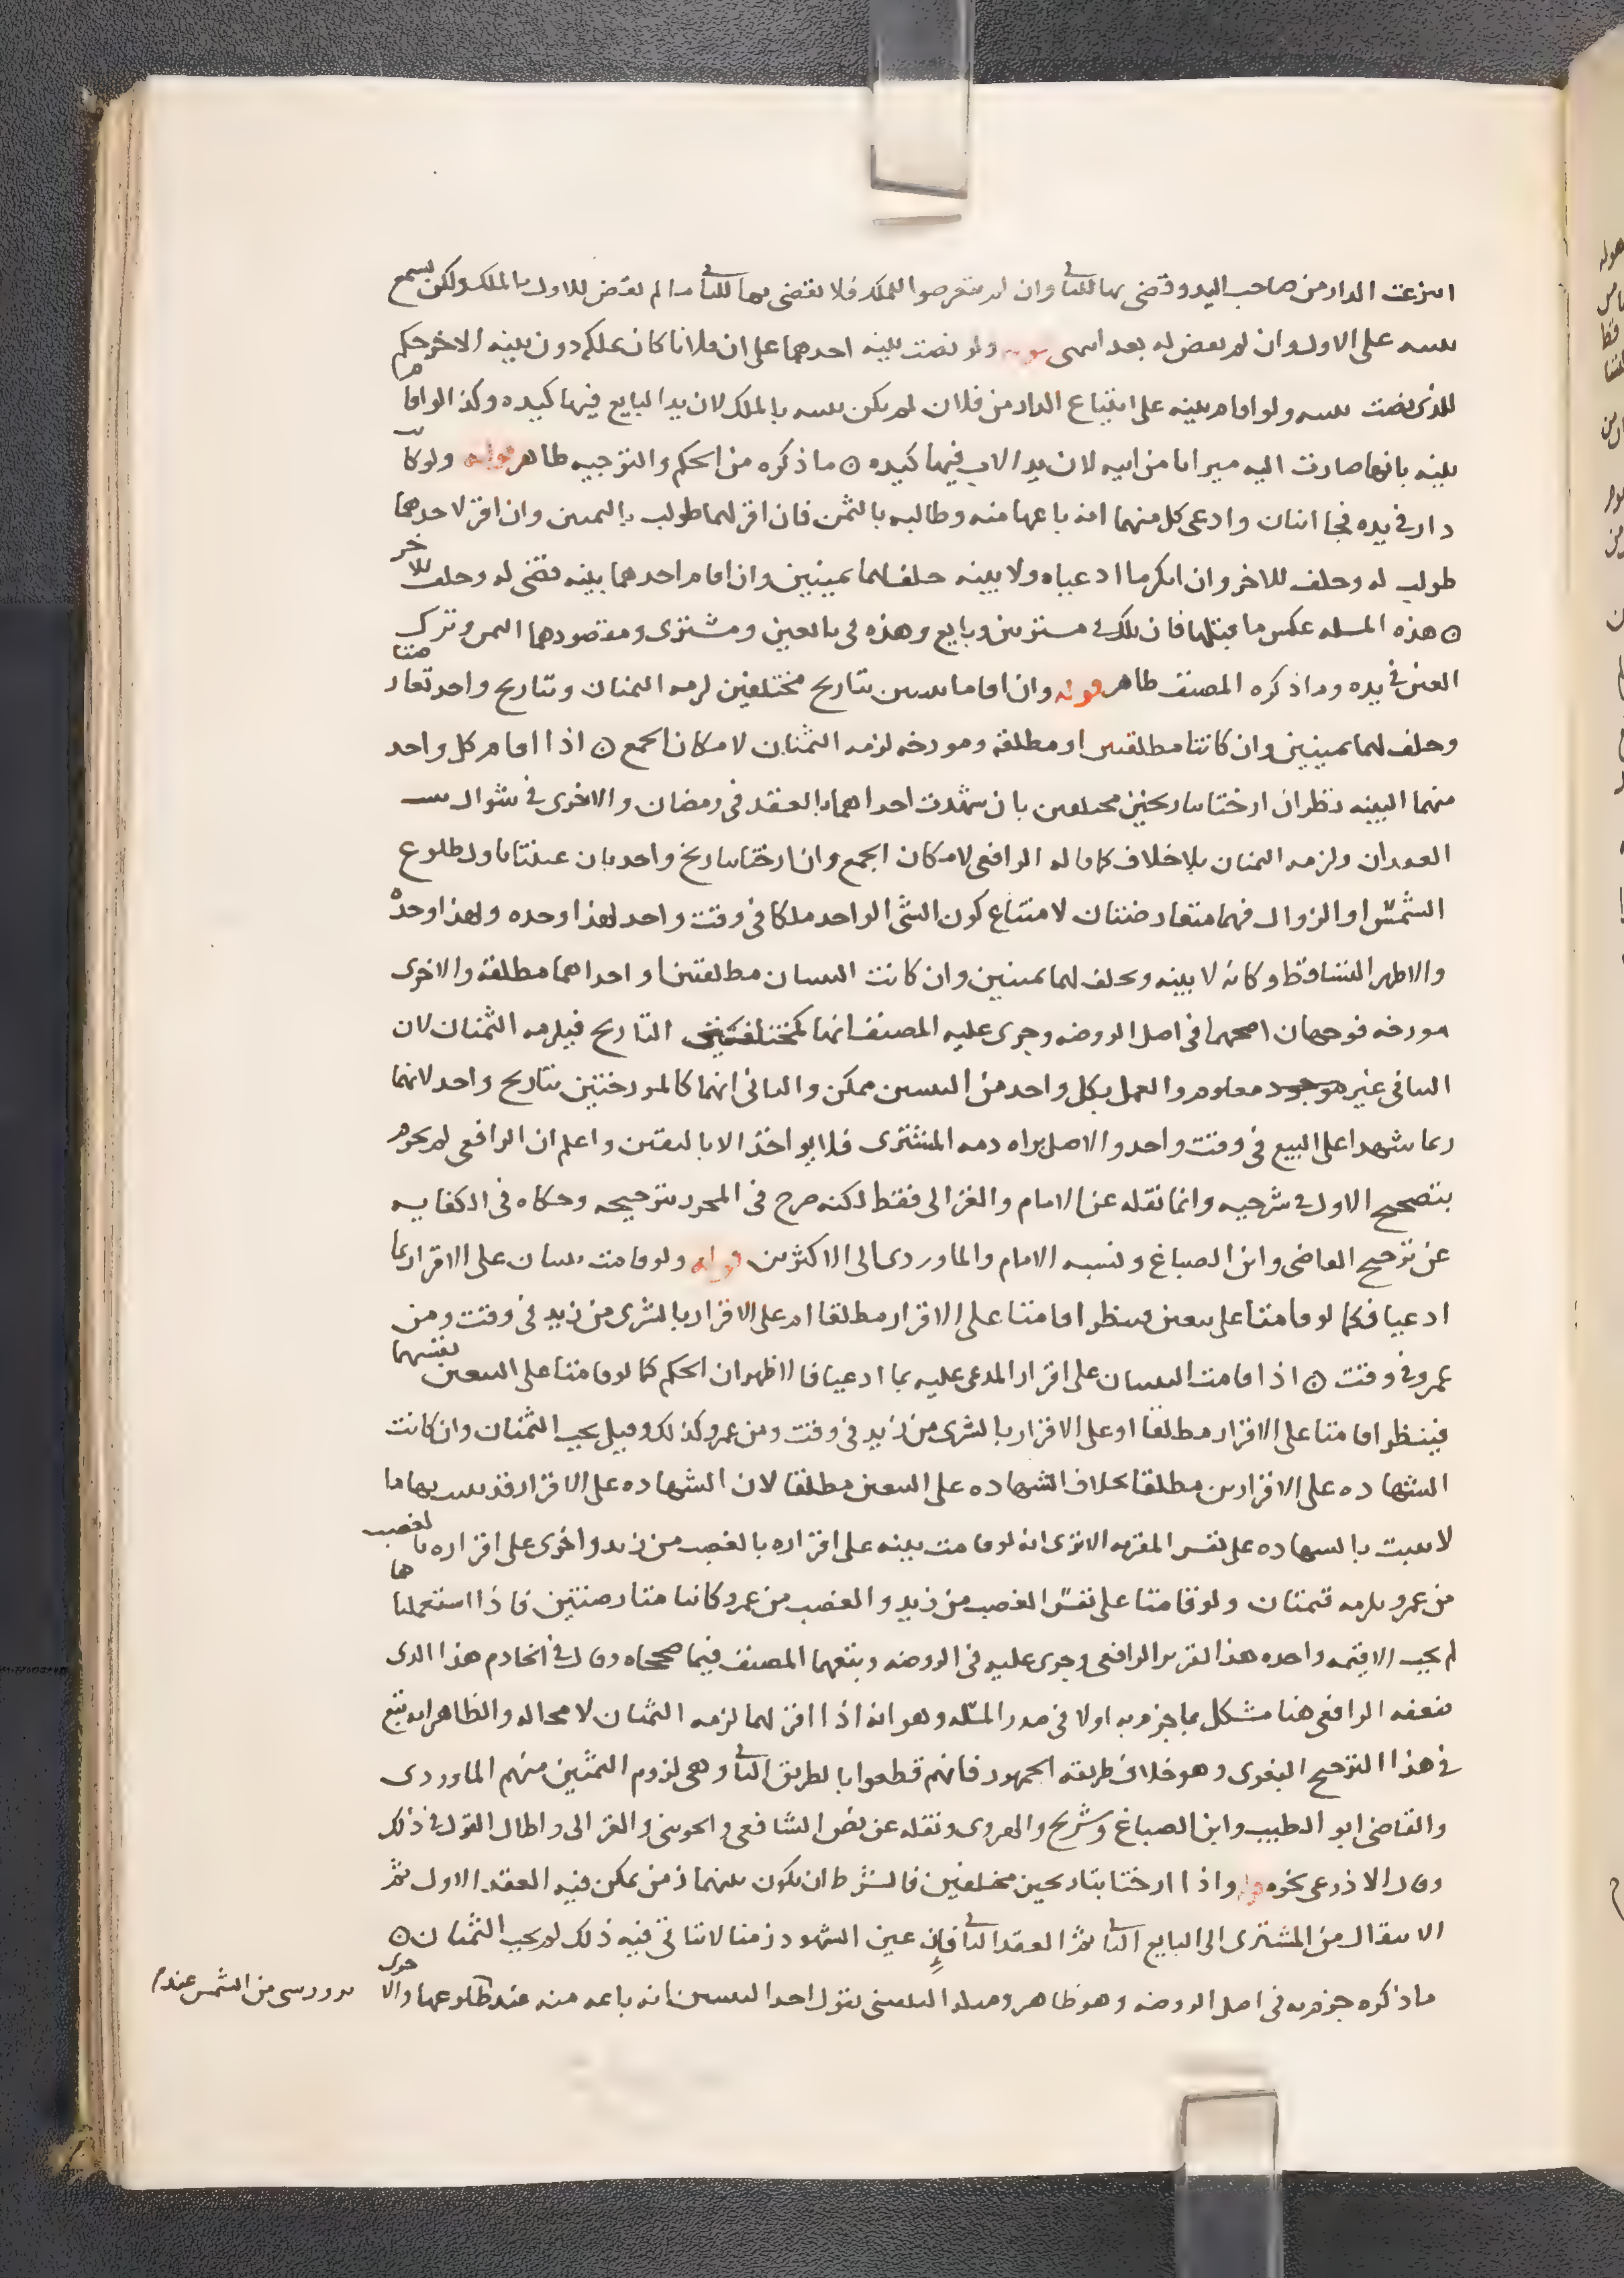 انتزعت الدار من صاحب اليد وقضى بها للثاني وان لم يتعرضوا للملك فلا يقضى بها للثاني ما لم يقض للاول بالملك ولكن تسمع
بينته على الاول وان لم يقض له بعد انتهى قوله ولو نصت بينه احدهما على ان فلانا كان يملكه دون بينه الاخر حكم
للذى نصت بينته ولو اقام بينه على ابتياع الدار من فلان لم يكن بينه بالملك لان يد البايع فيها كيده وكذا لو اقام
بينه بانها صارت اليه ميراثا من ابيه لان يد الاب فيها كيده ۞ ما ذكره من الحكم والتوجيه ظاهر قوله ولو كانت
دار في يده فجا اثنان وادعى كل منهما انه باعها منه وطالبه بالثمن فان اقر لهما طولب بالثمنين وان اقر لاحدهما
طولب له وحلف للاخر وان انكر ما ادعياه ولا بينه حلف لهما يمينين وان اقام احدهما بينه قضى له وحلف للاخر
۞ هذه المسله عكس ما قبلها فان تلك في مشتريين وبايع وهذه في بائعين ومشترى ومقصودهما الثمن وترك
العين في يده وما ذكره المصنف ظاهر قوله وان اقاما بينتين بتاريخ مختلفين لزمه الثمنان وبتاريخ واحد تعارضتا
وحلف لهما يمينين وان كانتا مطلقتين او مطلقه ومورخه لزمه الثمنان لامكان الجمع ۞ اذا اقام كل واحد
منهما البينه نظر ان ارختا بتاريخين مختلفين بان شهدت احداهما بالعقد في رمضان والاخرى في شوال ثبت
العقدان ولزمه الثمنان بلا خلاف كما قاله الرافعى لامكان الجمع وان ارختا بتاريخ واحد بان عينتا اول طلوع
الشمس او الزوال فهما متعارضتان لامتناع كون الشى الواحد ملكا في وقت واحد لهذا وحده ولهذا وحده
والاظهر التساقط وكانه لا بينه ويحلف لهما يمينين وان كانت البينتان مطلقتين او احداهما مطلقه والاخرى
مورخه فوجهان اصحهما في اصل الروضه وجرى عليه المصنف انهما كمختلفتي التاريخ فيلزمه الثمنان لان
التنافى غير موجود معلوم والعمل بكل واحد من البينتين ممكن والثانى انهما كالمورختين بتاريخ واحد لانهما
ربما شهدا على البيع في وقت واحد والاصل براه ذمه المشترى فلا يواخذ الا باليقين واعلم ان الرافعى لم يجزم
بتصحيح الاول في شرحيه وانما نقله عن الامام والغزالى فقط لكنه صرح في المحرر بترجيحه وحكاه في الكفايه
عن ترجيح القاضى وابن الصباغ ونسبه الامام والماوردى الى الاكثرين قوله ولو قامت بينتان على الاقرار بما
ادعيا فكما لو قامتا على بيعين وينظر اقامتا على الاقرار مطلقا ام على الاقرار بالشرى من زيد في وقت ومن
عمرو في وقت ۞ اذا قامت البينتان على اقرار المدعى عليه بما ادعيا فالاظهر ان الحكم كما لو قامتا على البيعين نفسهما
فينظر اقامتا على الاقرار مطلقا او على الاقرار بالشرى من زيد في وقت ومن عمرو كذلك وقيل يجب الثمنان وان كانت
الشهاده على الاقرارين مطلقا بخلاف الشهاده على البيعين مطلقا لان الشهاده على الاقرار قد يثبت بها ما
لا يثبت بالشهاده على نفس المقر به الا ترى انه لو قامت بينه على اقراره بالغصب من زيد واخرى على اقراره بالغصب
من عمرو يلزمه قيمتان ولو قامتا على نفس الغصب من زيد والغصب من عمرو كانتا متعارضتين فاذا استعملناهما
لم يجب الا قيمه واحده هذا تقرير الرافعى وجرى عليه في الروضه وتبعهما المصنف فيما صححاه وقال في الخادم هذا الذى
ضعفه الرافعى هنا مشكل بما جزم به اولا في صدر المسله وهو انه اذا اقر لهما لزمه الثمنان لا محاله والظاهر انه تبع
في هذا الترجيح البغوى وهو خلاف طريقه الجمهور فانهم قطعوا بالطريق الثاني وهى لزوم الثمنين منهم الماوردى
والقاضى ابو الطيب وابن الصباغ وشريح والهروى ونقله عن نص الشافعى والجوينى والغزالى واطال القول في ذلك
وقال الاذرعى نحوه قوله واذا ارختا بتاريخين مختلفين فالشرط ان يكون بينهما زمن يمكن فيه العقد الاول ثم
الانتقال من المشترى الى البايع الثاني ثم العقد الثاني فان عين الشهود زمنا لا يتاتى فيه ذلك لم يجب الثمنان ۞
ما ذكره جزم به في اصل الروضه وهو ظاهر ومثله البلقينى بقول احد البينتين انه باعه منه عند طلوعها والاخرى
من الشمس عند